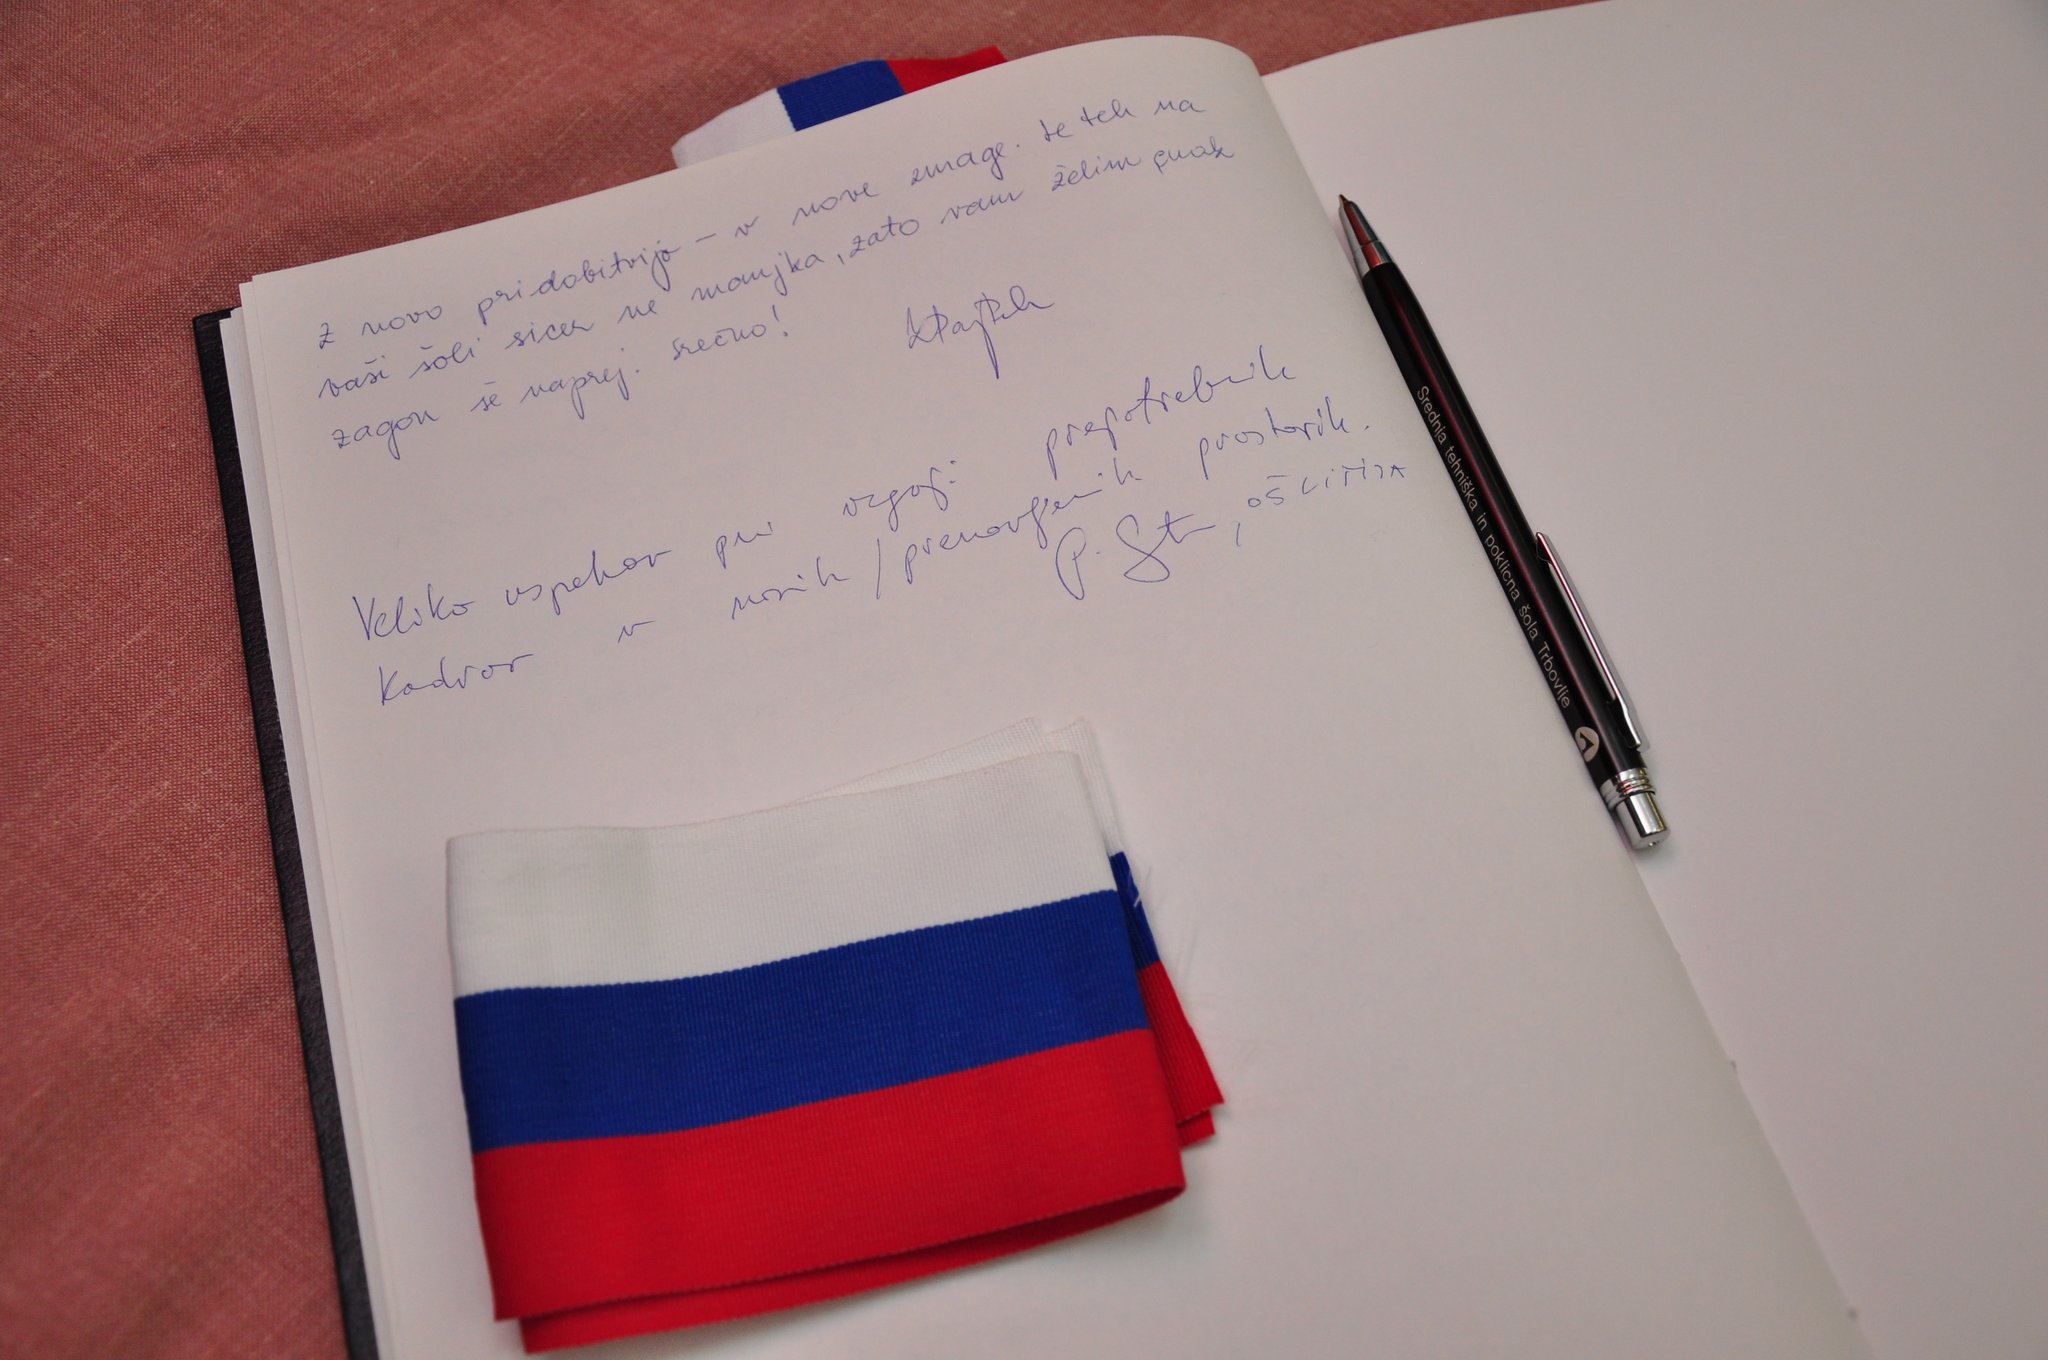 Z novo pridobitvijo – v nove zmage. Te teh na
vaši šoli sicer ne manjka, zato vam želim enak
zagon še naprej. Srečno!
Veliko uspehov pri vzgoji prepotrebnih
kadrov v novih / prenovljenih prostorih.
P. , OŠ LITIJA
Srednja tehniška in poklicna šola Trbovlje